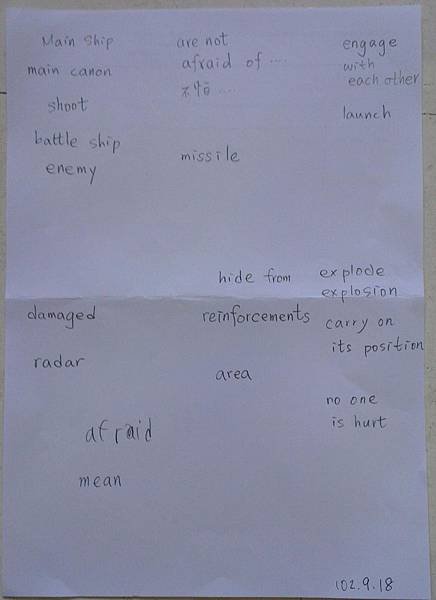 Main Ship
main canon
shoot
battle ship
enemy
are not
afraid of ....
不怕 ....
missile
engage
with
each other
launch
damaged
radar
afraid
mean
hide from
reinforcements
area
explode
explosion
carry on
its position
no one
is hurt
102.9.18